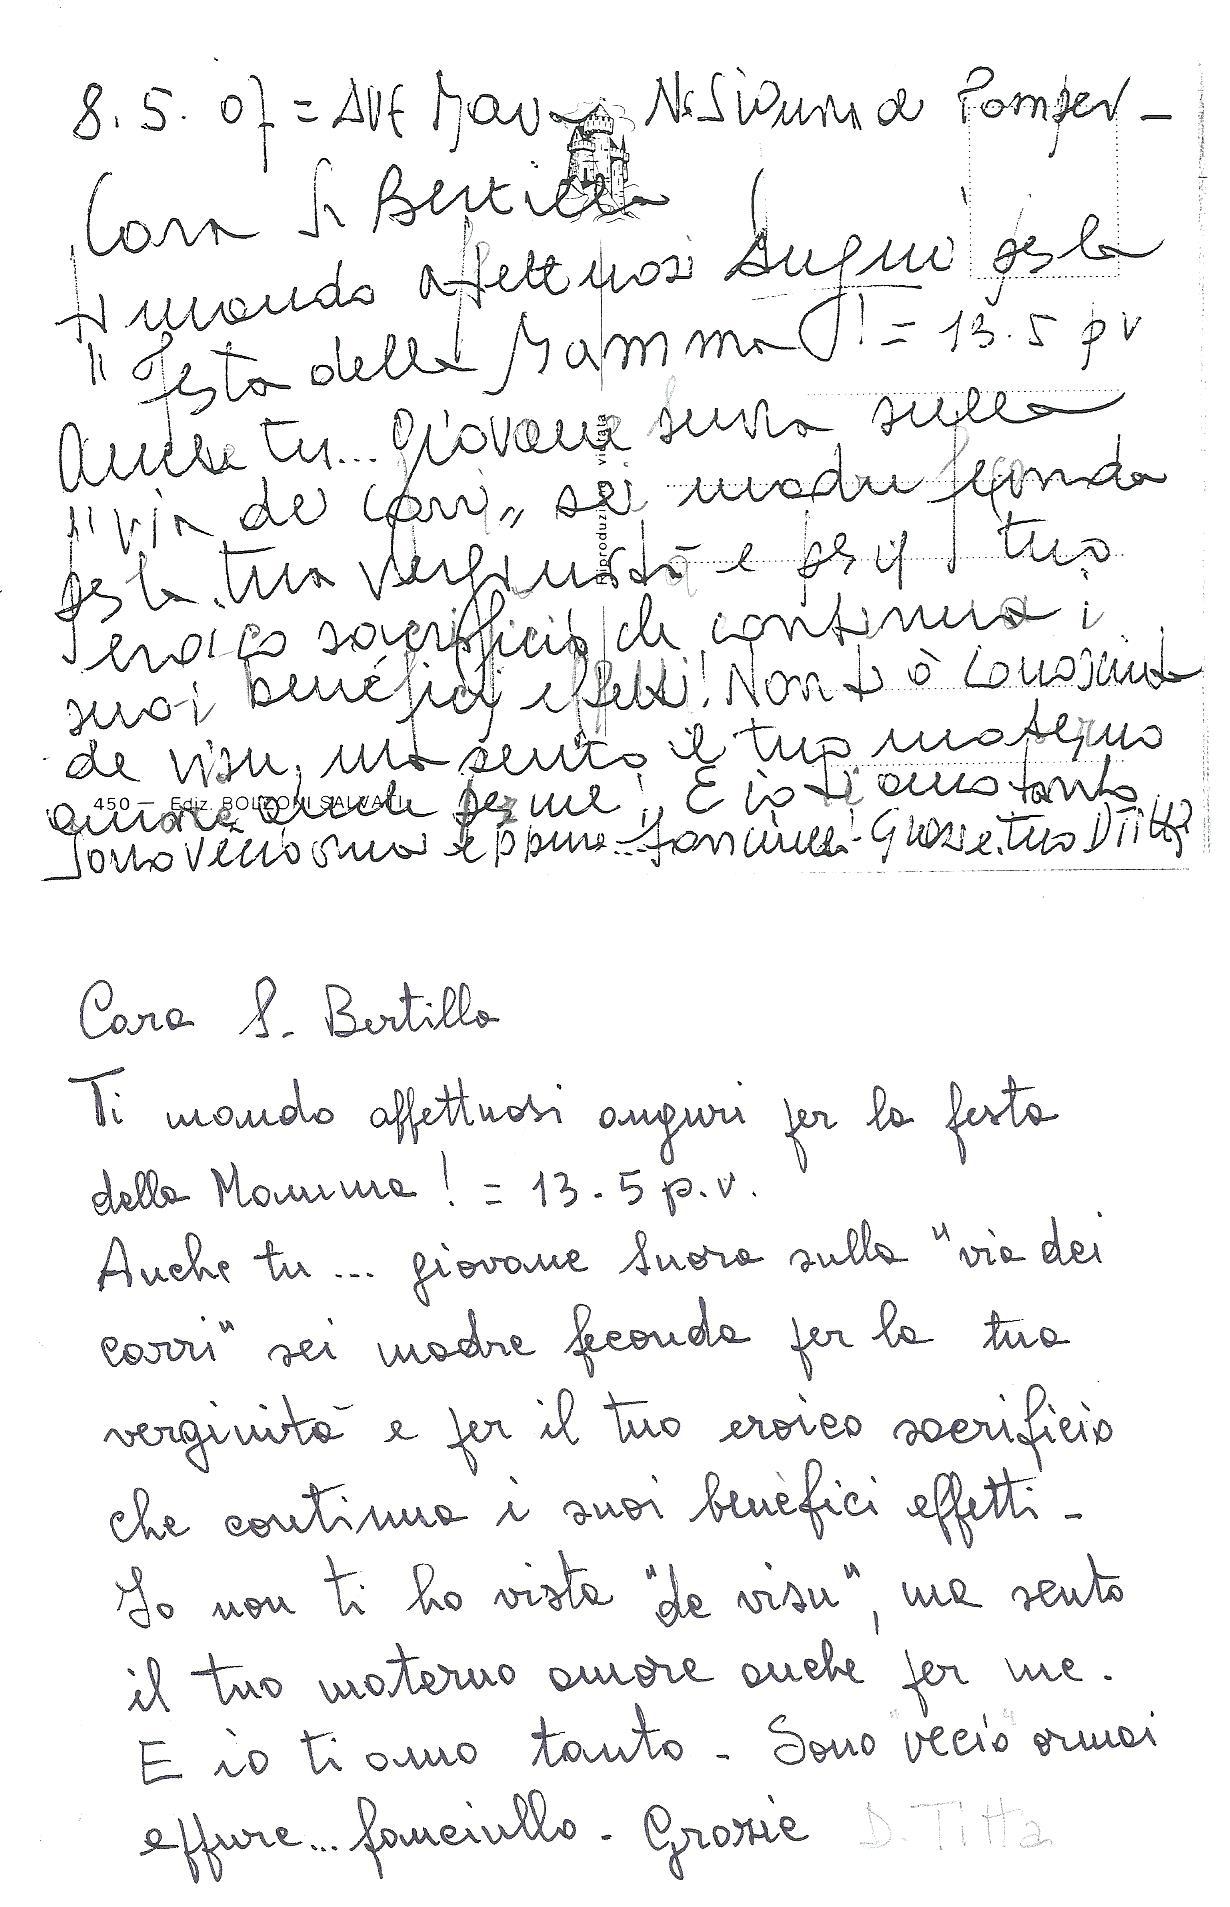 8.5.07 = AVE Maria N. Signora di Pompei -
Cara Sr Bertilla
ti mando affettuosi Auguri per la
"Festa della Mamma"! = 13.5 p v
Anche tu... giovane suora sulla
"via dei carri" sei madre feconda
per la tua verginità e per il tuo
eroico sacrificio che continua i
suoi benéfici effetti! Non t'ò conosciuta
de visu, ma sento il tuo materno
amore anche per me! E io ti amo tanto
Sono vecio ormai eppure... fanciullo! Grazie. tuo D Titta
Riproduzione vietata
450 — Ediz. BOLZONI SALVATI
Cara S. Bertilla
Ti mando affettuosi auguri per la festa
della Mamma! = 13-5 p.v.
Anche tu... giovane Suora sulla "via dei
carri" sei madre feconda per la tua
verginità e per il tuo eroico sacrificio
che continua i suoi benèfici effetti -
Io non ti ho vista "de visu", ma sento
il tuo materno amore anche per me.
E io ti amo tanto - Sono "vecio" ormai
eppure... fanciullo - Grazie D. Titta